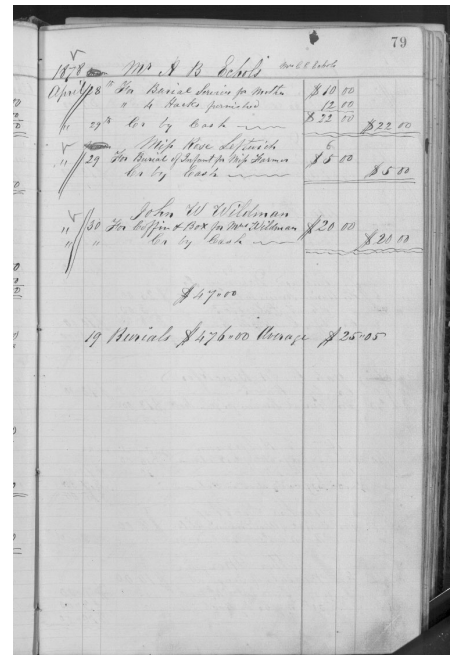 79
1878 Mr A B Echols Mrs E R Echols
April 28th For Burial Service for Mother $10 00
" 4 Hacks furnished 12 00
$22 00
" 29th Cr by Cash $22 00
Miss Rose Leftwich
" 29 For Burial of Infant for Miss Farmer $5 00
Cr by Cash $5 00
John W Wildman
" 30 For Coffin & Box for Mrs Wildman $20 00
" " Cr by Cash $20 00
$47.00
19 Burials $476.00 Average $25.05